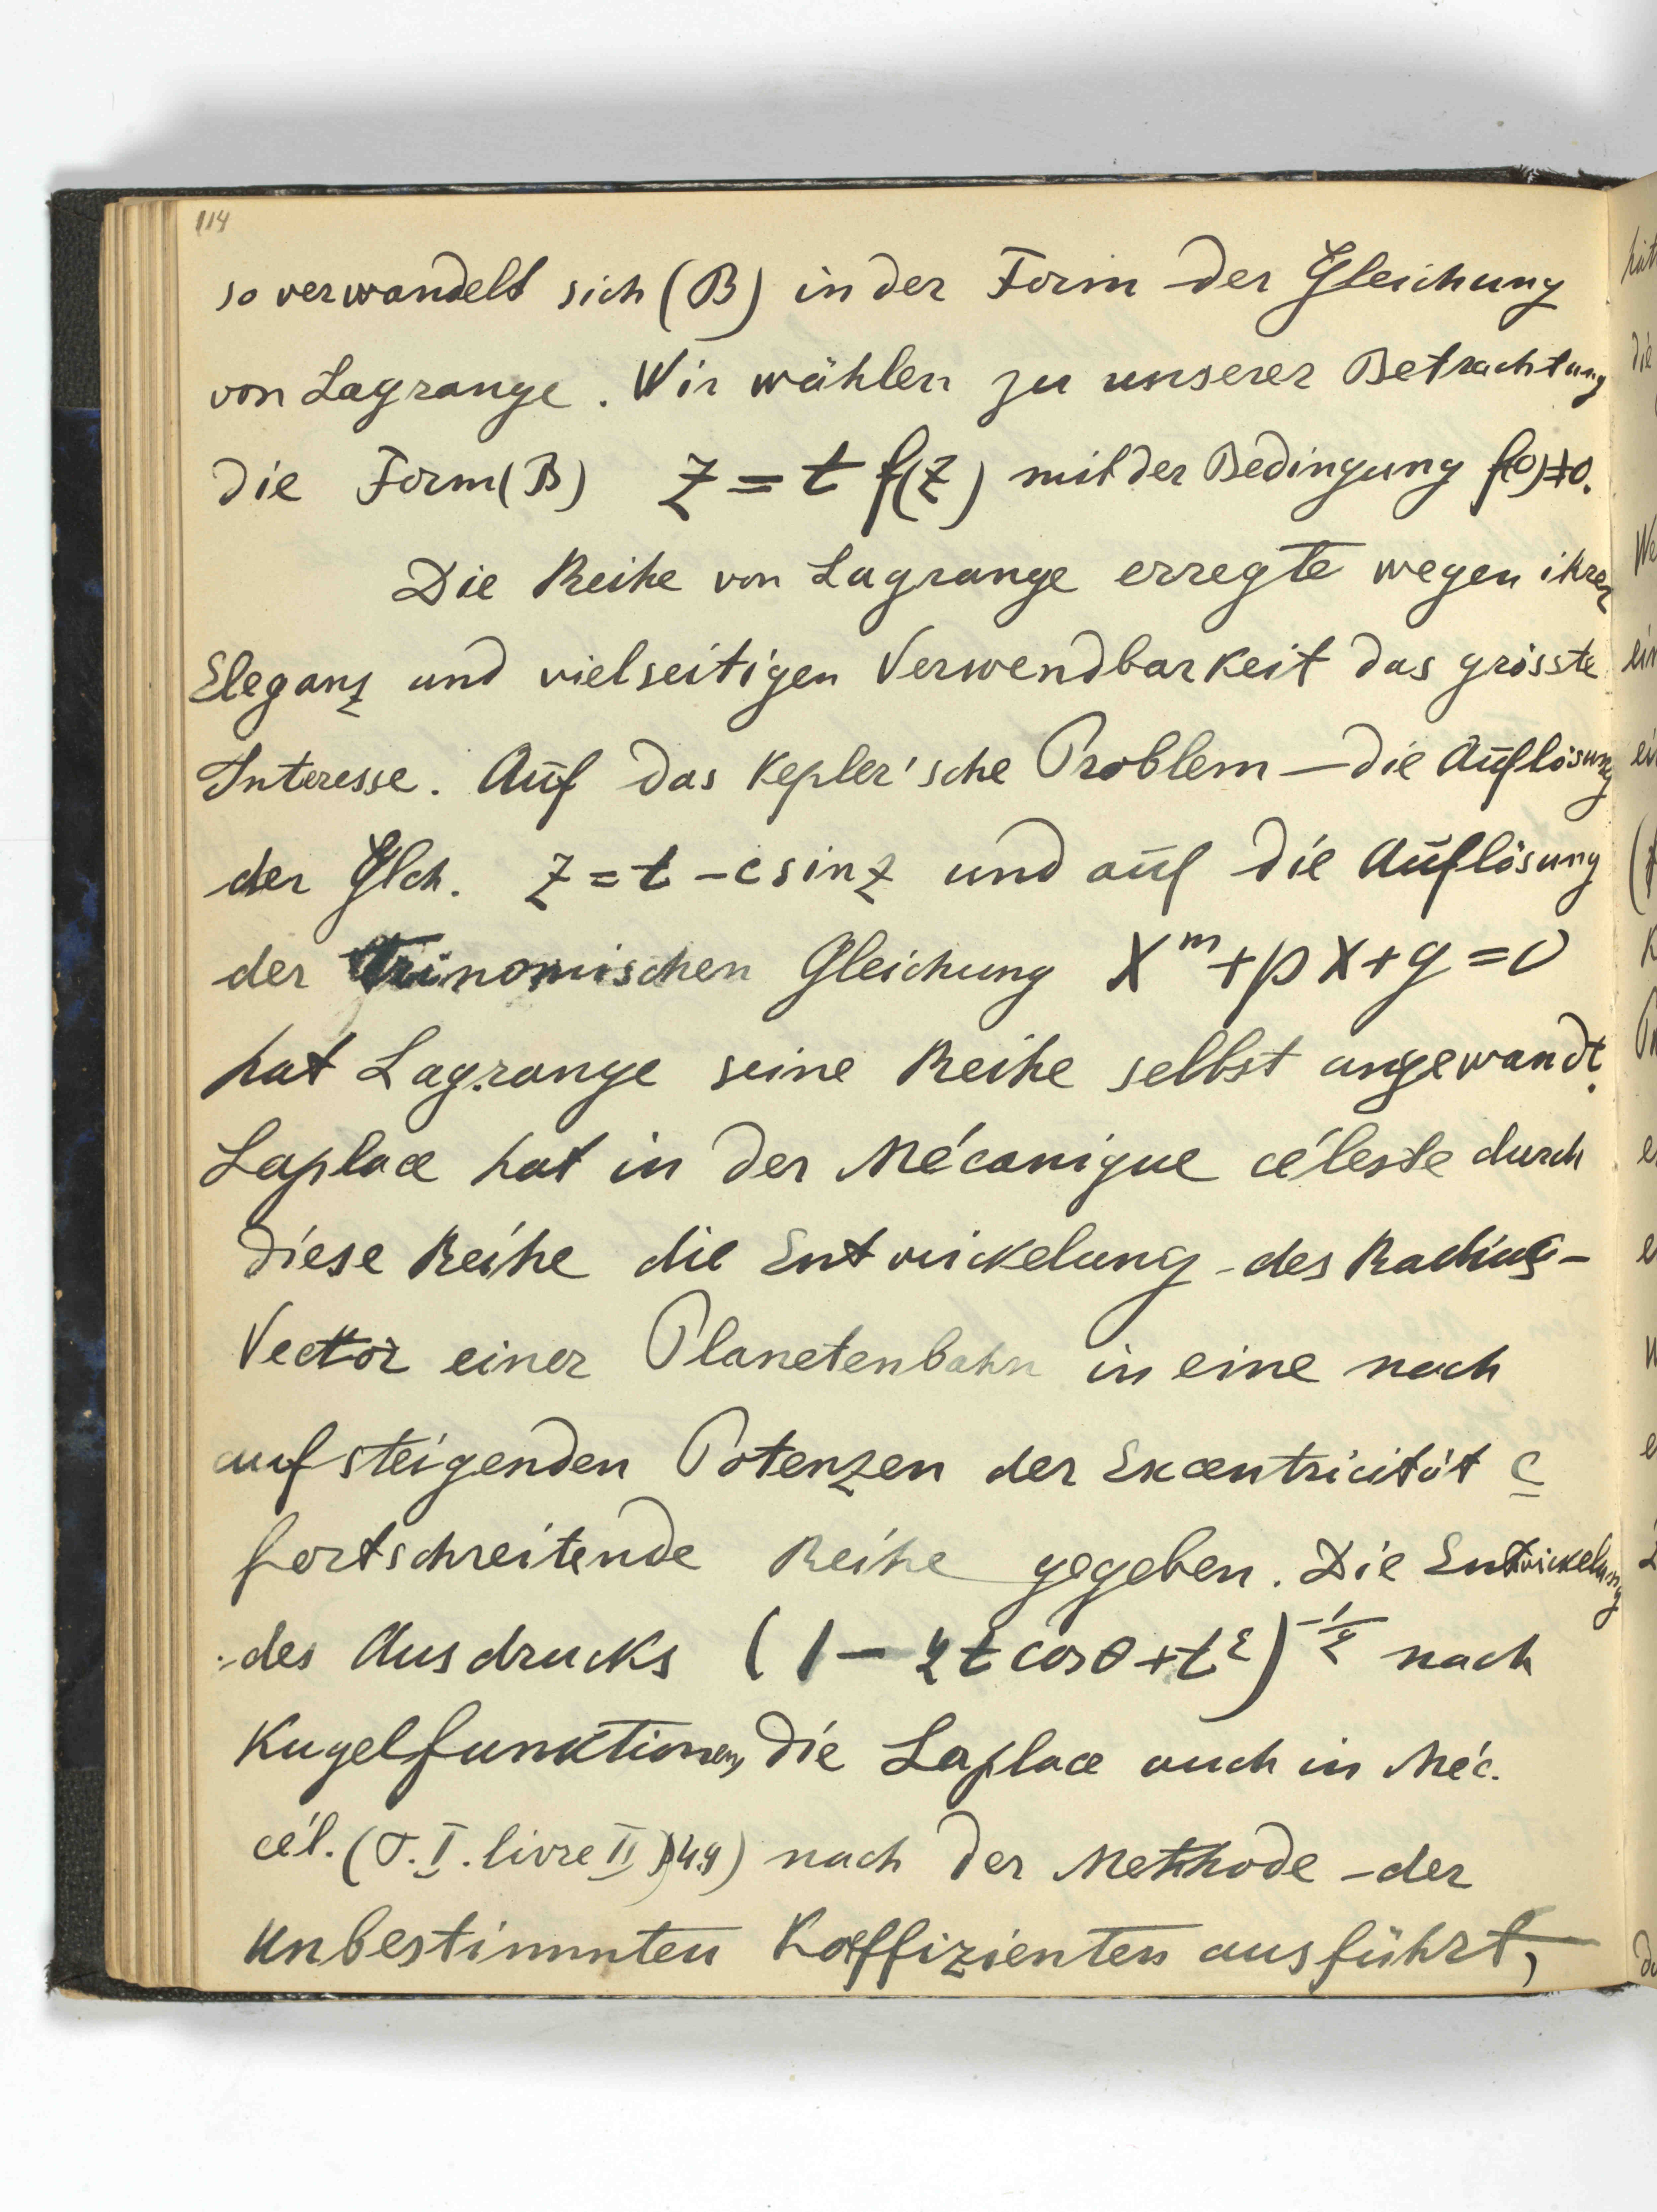 114
so verwandelt sich (B) in der Form der Gleichung
von Lagrange. Wir wählen zu unserer Betrachtung
die Form (B) z = t f(z) mit der Bedingung f(0) ≠ 0.
Die Reihe von Lagrange erregte wegen ihrer
Eleganz und vielseitigen Verwendbarkeit das grösste
Interesse. Auf das Kepler'sche Problem — die Auflösung
der Glch. z = t - c sin z und auf die Auflösung
der Trinomischen Gleichung x^m + px + q = 0
hat Lagrange seine Reihe selbst angewandt.
Laplace hat in der Mécanique céleste durch
diese Reihe die Entwickelung des Radius-
Vector einer Planetenbahn in eine nach
aufsteigenden Potenzen der Excentricität c
fortschreitende Reihe gegeben. Die Entwickelung
des Ausdrucks (1 - 2t cos θ + t²)^(-1/2) nach
Kugelfunktionen, die Laplace auch in Méc.
cél. (T. I. livre II) 49) nach der Methode der
unbestimmten Koeffizienten ausführt,